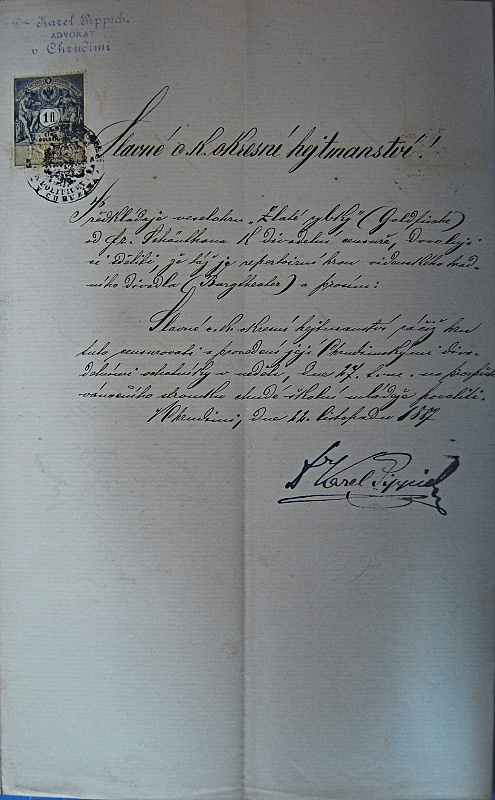 Dr. Karel Pippich,
ADVOKÁT
v Chrudimi
1 fl
Slavné c. k. okresní hejtmanství!
Předkládaje veselohru „Zlaté rybky“ (Goldfische)
od Fr. Schönthana k divadelní censuře, dovoluji
si sděliti, že táž je repertoirní kus vídeňského dvor-
ního divadla (Burgtheater) a prosím:
Slavné c. k. okresní hejtmanství račiž hru
tuto censurovati a provedení její Chrudimskými diva-
delními ochotníky v neděli, dne 27. t. m. na prospěch
vánočního stromku chudé školní mládeže povoliti.
V Chrudimi, dne 22. listopadu 1887
Dr Karel Pippich